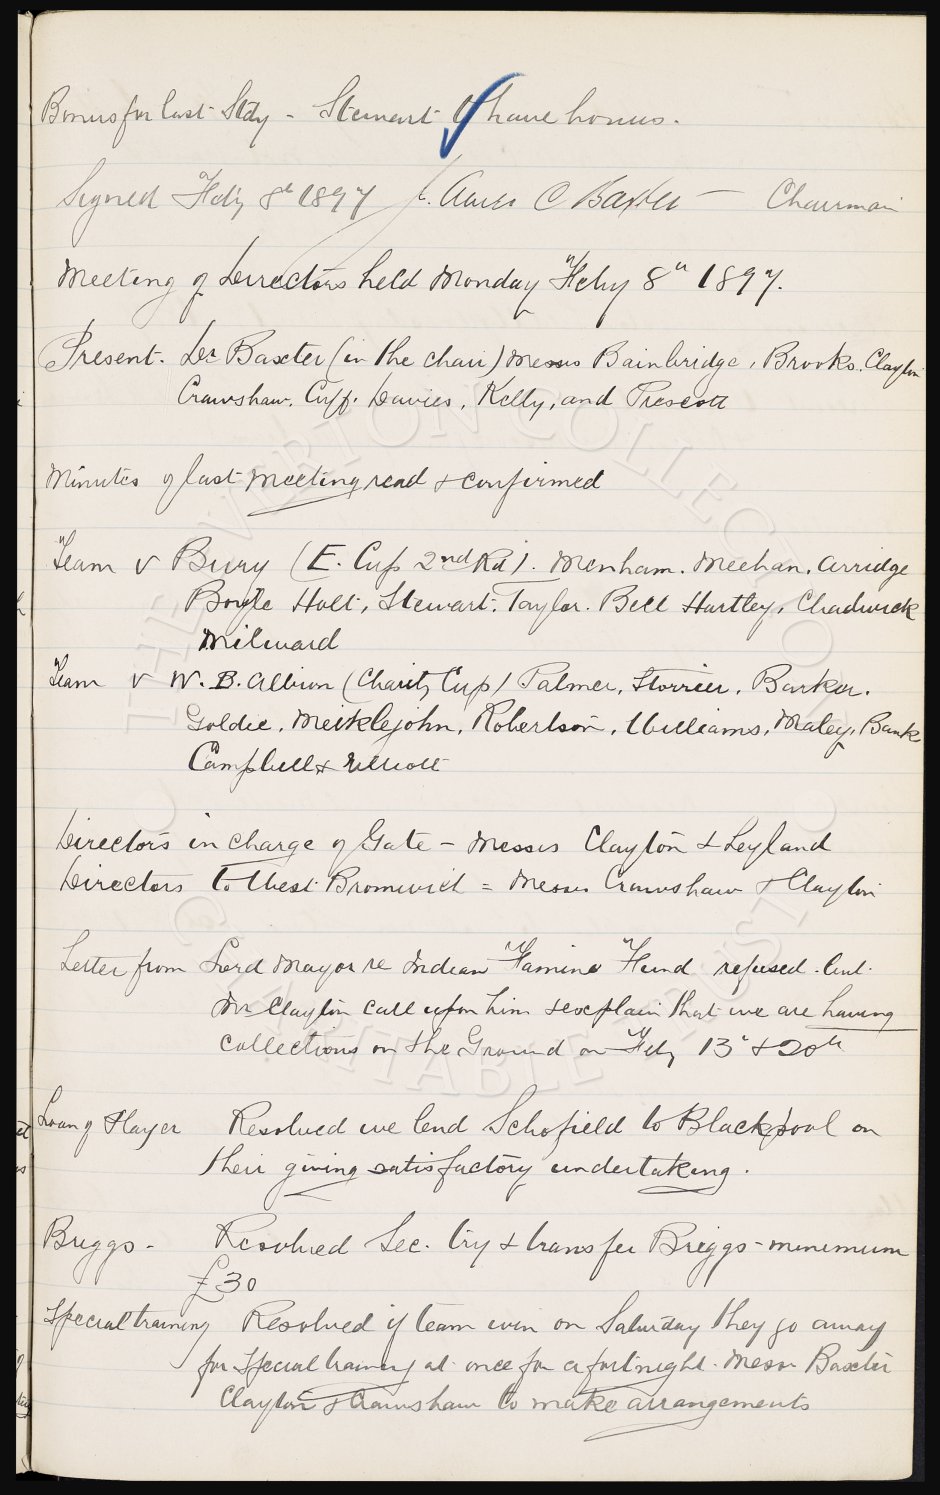 Bonus for last Stdy - Stewart to have bonus.
Signed Feby 8th 1897 James C Baxter - Chairman
Meeting of Directors held Monday Feby 8th 1897.
Present. Dr Baxter (in the chair) Messrs Bainbridge, Brooks, Clayton
Crawshaw, Cuff, Davies, Kelly, and Prescott
Minutes of last meeting read & confirmed
Team v Bury (E. Cup 2nd Rd). Menham. Meehan, Arridge
Boyle Holt, Stewart, Taylor. Bell Hartley, Chadwick
Milward
Team v W. B. Albion (Charity Cup) Palmer, Storrier, Barker.
Goldie, Meiklejohn, Robertson, Williams, Maley, Banks
Campbell & Elliott
Directors in charge of Gate - Messrs Clayton & Leyland
Directors to West Bromwich = Messrs Crawshaw & Clayton
Letter from Lord Mayor re Indian Famine Fund refused. but
Mr Clayton call upon him & explain that we are having
collections on the Ground on Feby 13th & 20th
Loan of Player Resolved we lend Schofield to Blackpool on
their giving satisfactory undertaking.
Briggs - Resolved Sec. try & transfer Briggs - minimum
£30
Special training Resolved if team win on Saturday they go away
for special training at once for a fortnight. Messrs Baxter
Clayton & Crawshaw to make arrangements
THE EVERTON COLLECTION CHARITABLE TRUST